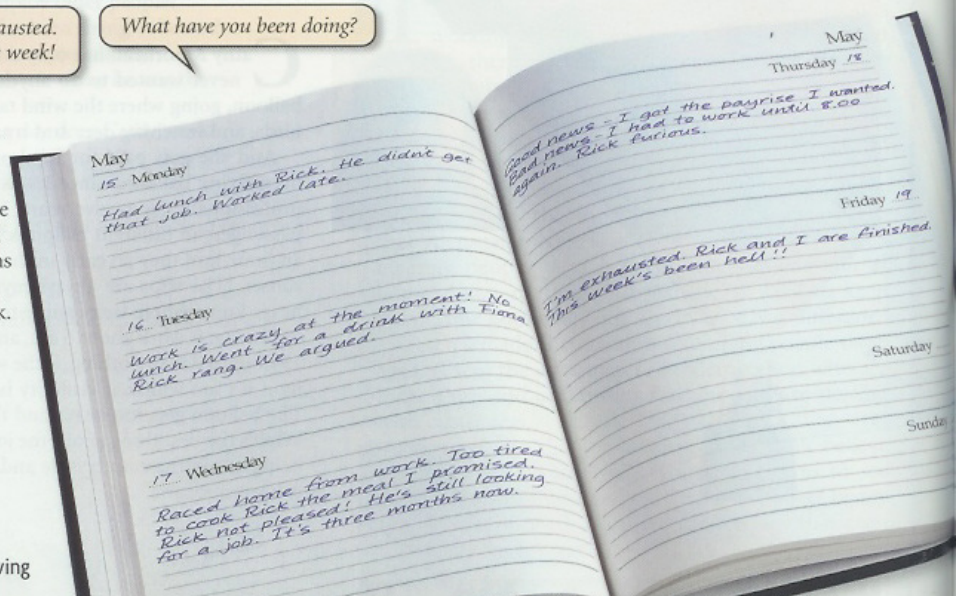 austed.
week!
What have you been doing?
May
15 Monday
Had lunch with Rick. He didn't get
that job. Worked late.
16 Tuesday
Work is crazy at the moment! No
lunch. Went for a drink with Fiona.
Rick rang. We argued.
17 Wednesday
Raced home from work. Too tired
to cook Rick the meal I promised.
Rick not pleased! He's still looking
for a job. It's three months now.
May
Thursday 18
Good news - I got the payrise I wanted.
Bad news - I had to work until 8.00
again. Rick furious.
Friday 19
I'm exhausted. Rick and I are finished.
This week's been hell!!
Saturday
Sunday
k.
ving